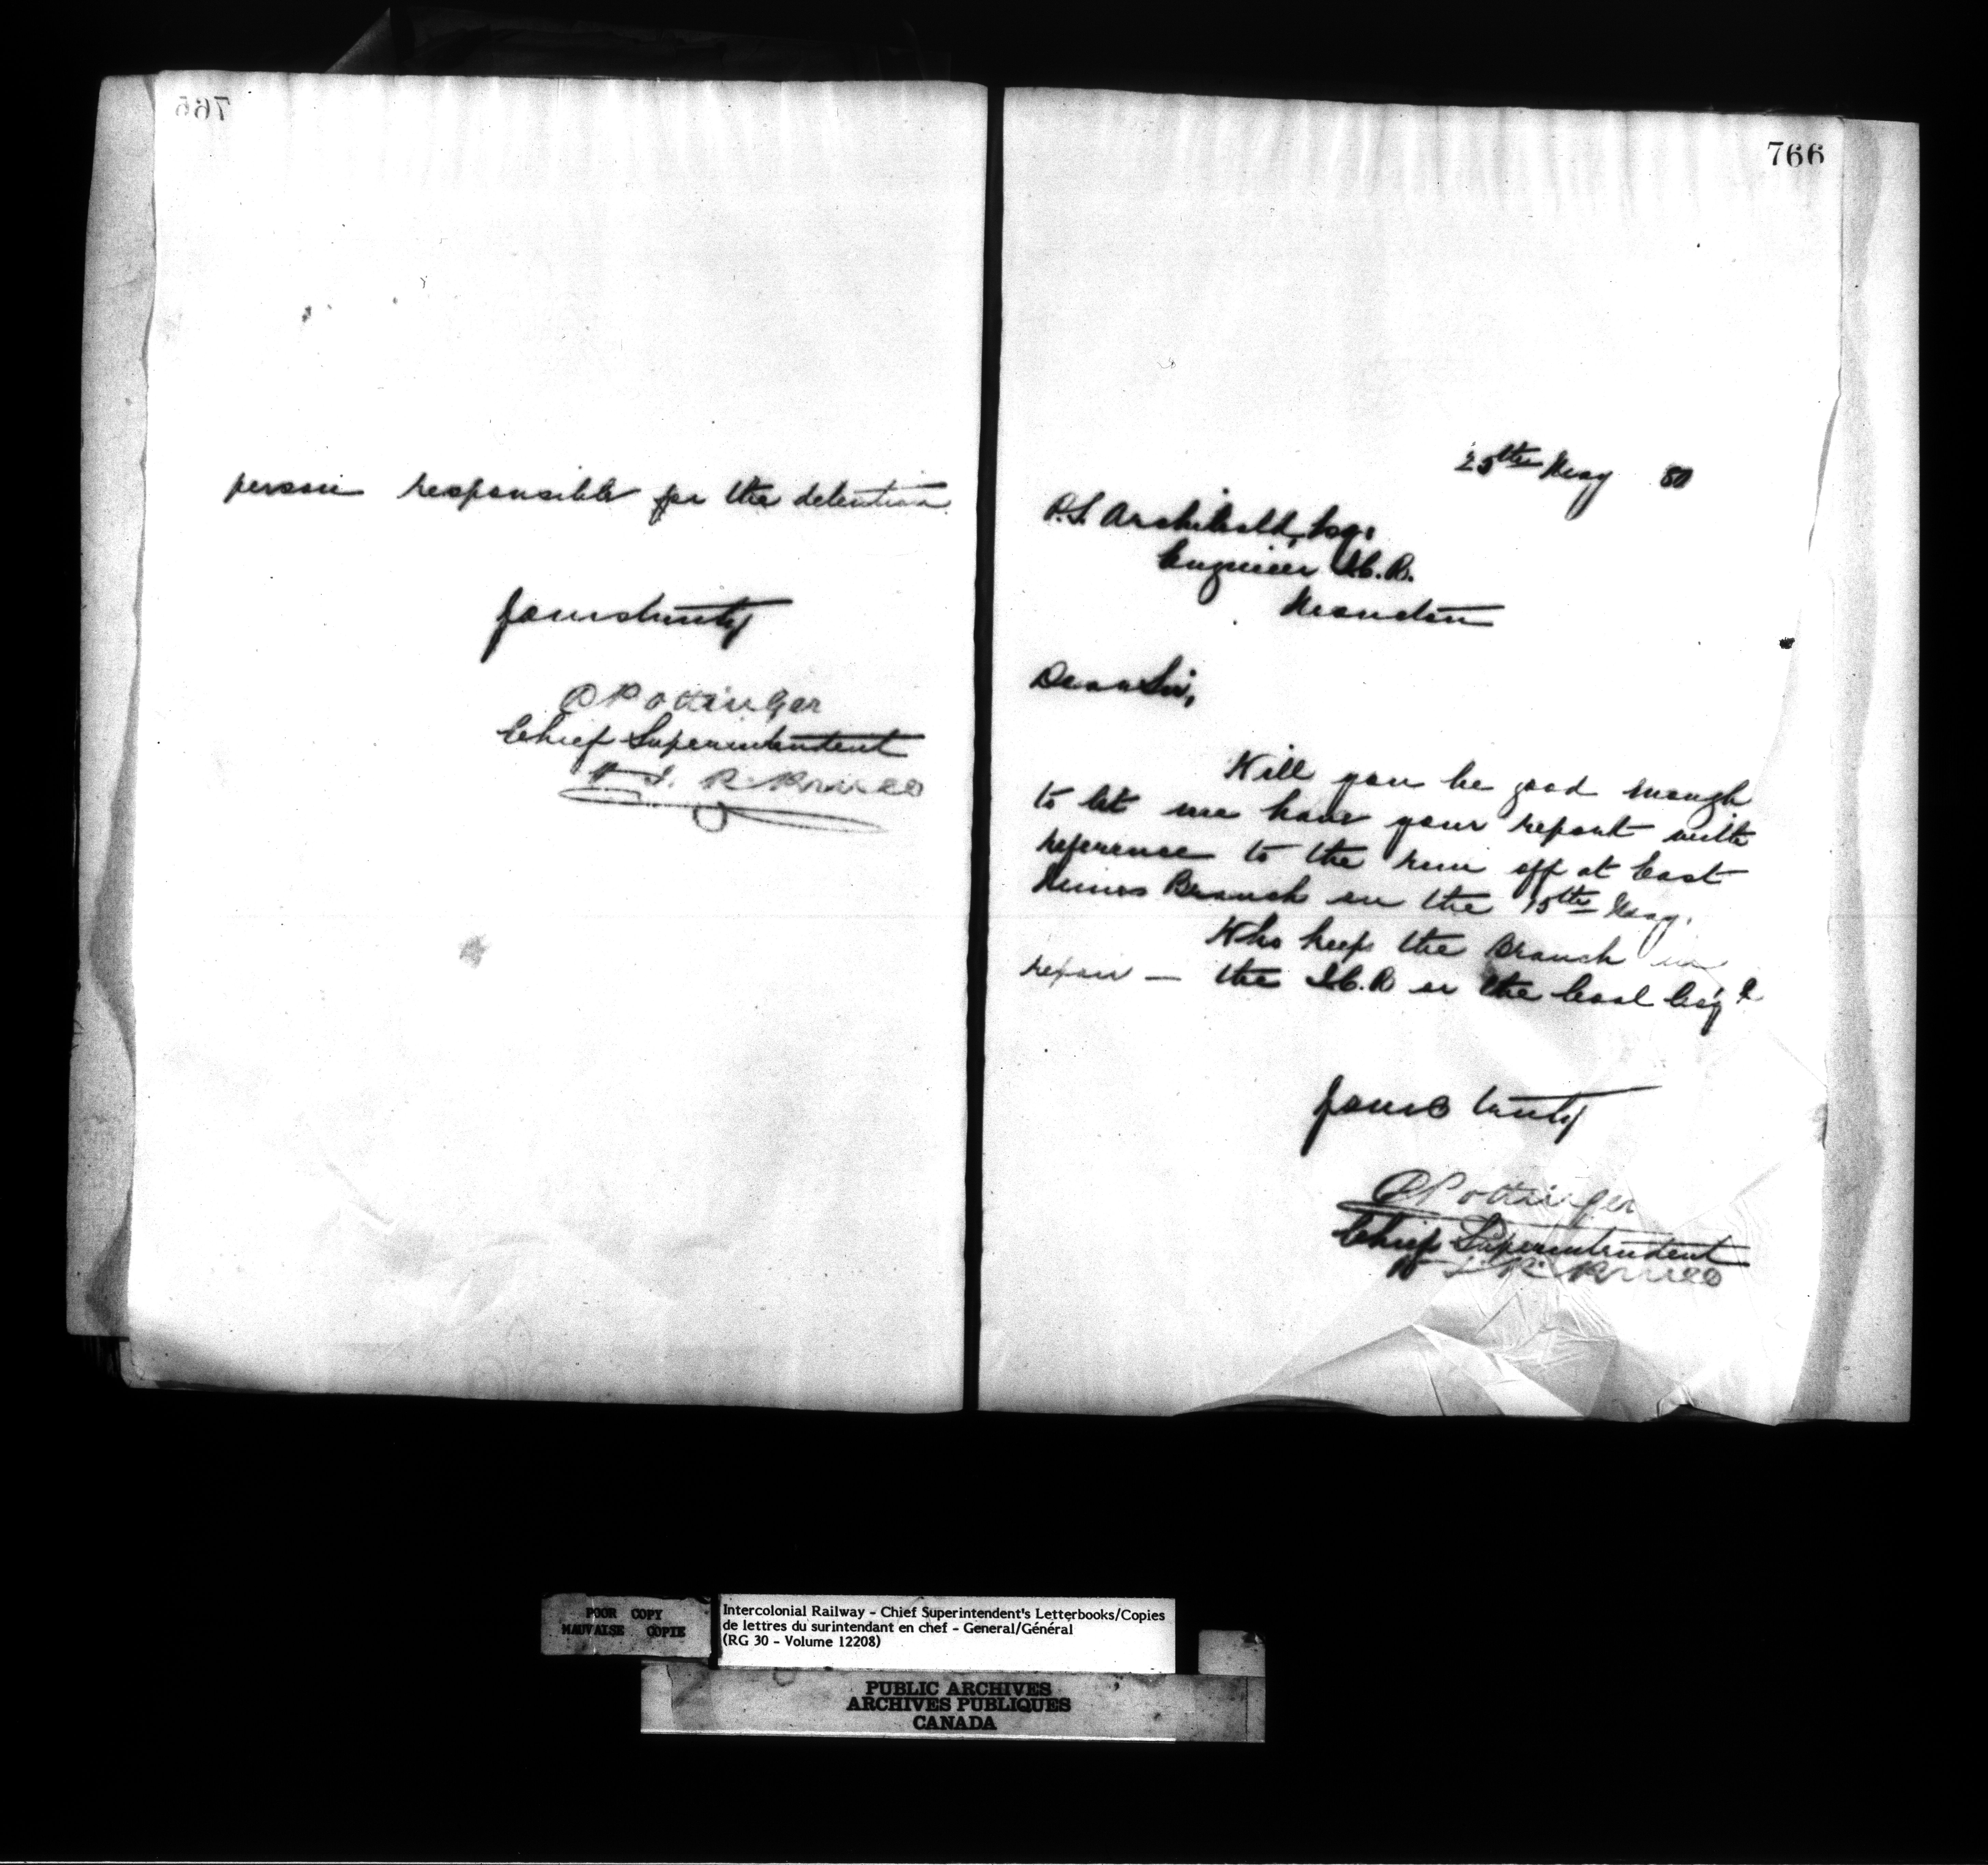 765
person responsible for the detention.
Yours truly
D Pottinger
Chief Superintendent
766
25th May 80
P.S. Archibald, Esq.
Engineer I.C.R.
Moncton
Dear Sir,
Will you be good enough
to let me have your report with
reference to the run off at East
Mines Branch on the 15th May.
Who keeps the Branch in
repair — the I.C.R or the Coal Co'y?
Yours truly
D Pottinger
Chief Superintendent
POOR COPY
MAUVAISE COPIE
Intercolonial Railway - Chief Superintendent's Letterbooks/Copies
de lettres du surintendant en chef - General/Général
(RG 30 - Volume 12208)
PUBLIC ARCHIVES
ARCHIVES PUBLIQUES
CANADA